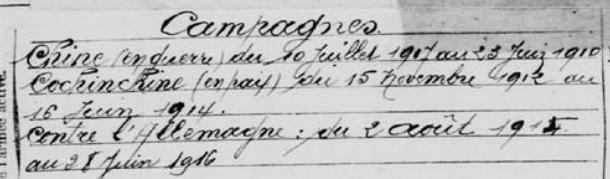 Campagnes.
Chine (en guerre) du 10 juillet 1907 au 23 Juin 1910
Cochinchine (en paix) du 15 novembre 1912 au
16 Juin 1914.
Contre l'Allemagne : du 2 août 1914
au 28 Juin 1916
l'armée active.